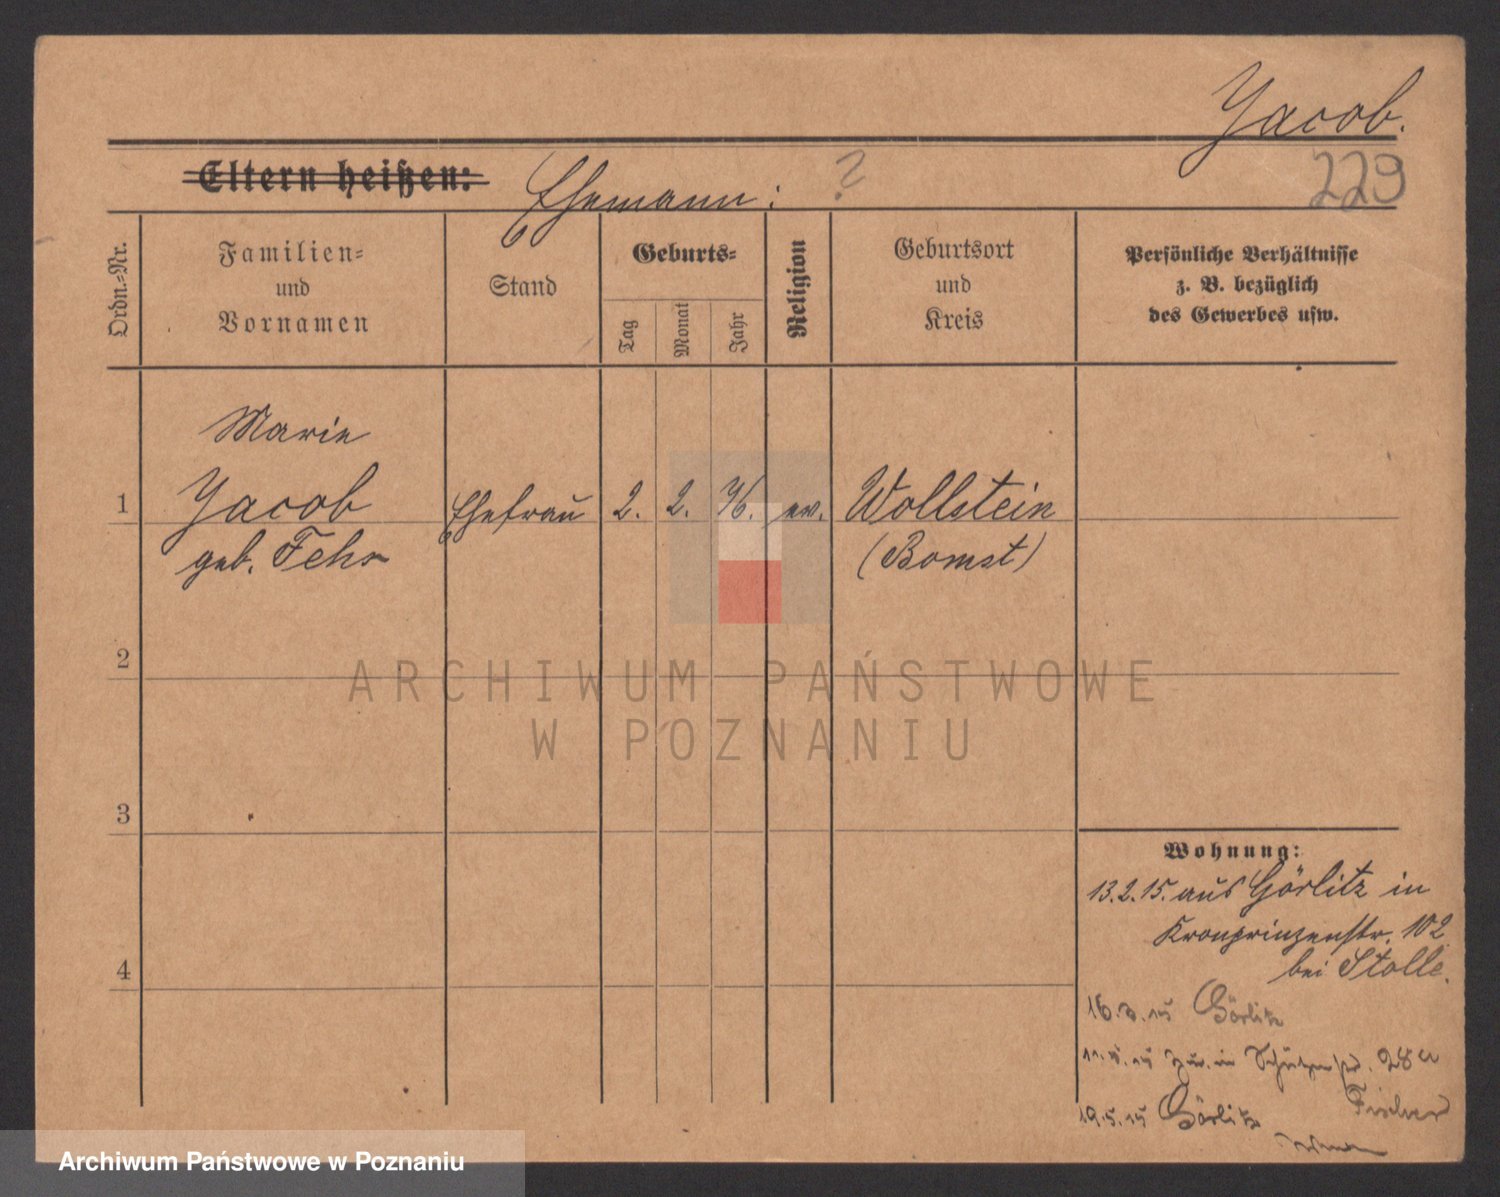 Jacob.
Eltern heißen:
Ehemann: ?
229
Ordn.-Nr.
Familien-
und
Vornamen
Stand
Geburts-
Tag
Monat
Jahr
Religion
Geburtsort
und
Kreis
Persönliche Verhältnisse
z. B. bezüglich
des Gewerbes usw.
Marie
1 Jacob Ehefrau 2. 2. 76. ev. Wollstein
geb. Fehr (Bomst)
2
3
4
Wohnung:
13.2.15. aus Görlitz in
Kronprinzenstr. 102
bei Stolle.
Görlitz
zur. in 28a
Fischer
19.5.15 Görlitz
ARCHIWUM PAŃSTWOWE
W POZNANIU
Archiwum Państwowe w Poznaniu